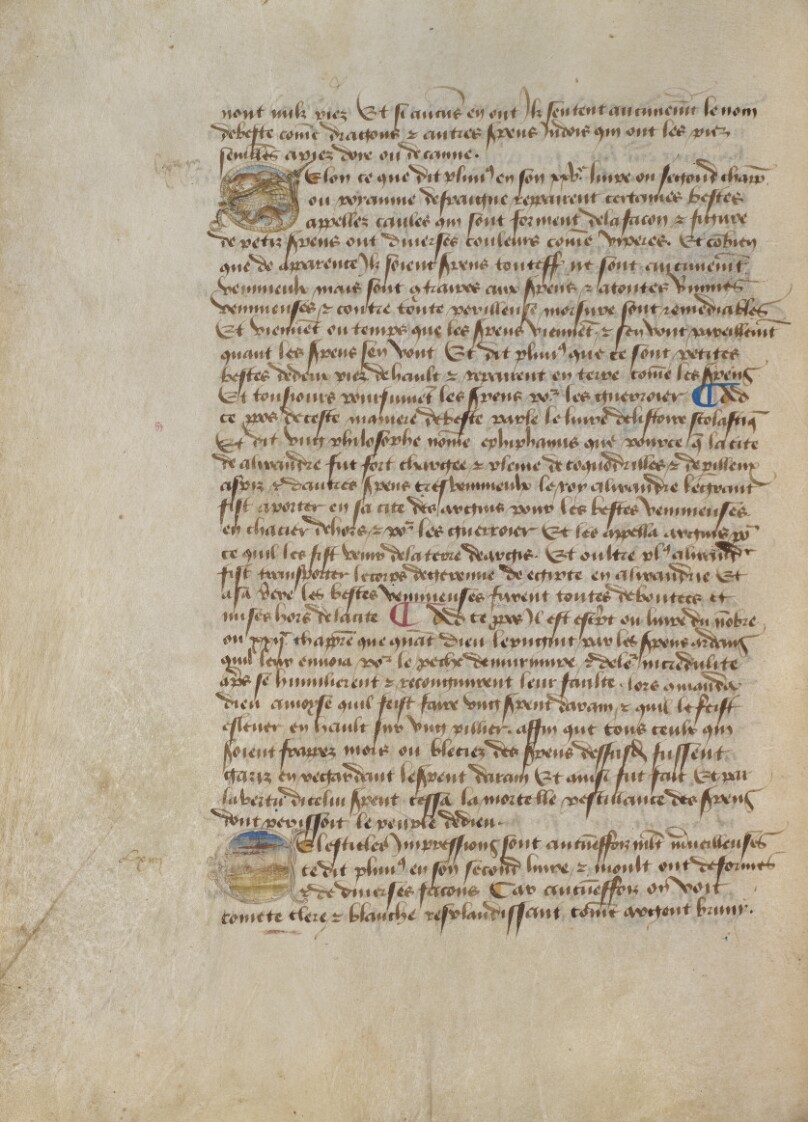 nont nulz piez Et si aucus en ont Ilz sentent aucunemt le nom
de beste come dragons & autres spens Indois qui ont les piez
semblēs a piez doye ou de canne.
Selon ce que dit plini9 en son livre ou second chap̄
ou royaume de frangue repairent certaines bestes
appellez caules qui sont forment de la facon & figure
de petiz spens ont diverses couleurs come viperes. Et cōbien
que de apparence Ilz soient spens toutess ne sont aucunemt
venimeulx mais sont ꝯtraires aux spens & a toutes vmines
venimeuses & contre toute perilleuse morsure sont remediables
Et viennēt ou temps que les spens viennēt & sen vont pareillemt
quant les spens sen vont Et dit plini9 que ce sont petites
bestes de deux piez de hault & repairent en terre come les spens
Et tousiours poursuivent les spens po les guerroier Ad
ce ppos de ceste maniere de beste parle le livre de listoire scolastiq
Et dit ung philosophe nome epiphanus que pource q̄ la cite
de alixandre fut fort chargee & pleine de coquodrilles & de pilleux
aspiz & dautres spens tres venimeulx le roy alixandre le grant
fist aporter en sa cite des argins pour les bestes venimeuses
en chacier dehors & po les guerroier Et les appella argins po
ce quil les fist venir de la terre de argis. Et oultre pl9 alixand
fist transporter le corps de geremie de egipte en alixandrie Et
a sa vere les bestes venimeuses furent toutes deboutees et
mises hors de la cite Ad ce ppos Il est escpt ou livre du nōbre
ou xxi chapitre que quāt dieu le pugnit par les spens ardans
quil leur envoia po le peche de murmure & de le incredulite
aps se humilierent & recongnurent leur faulte. lors amanda
dieu a moyse quil feist faire ung spent darain & quil le feist
eslever en hault sur ung pillier. affin que tous ceulx qui
soient frappez mors ou bleciez des spens dessusd fussent
gariz en regardant le spent darain Et ainsi fut fait Et par
la vertu dicelui spent cessa la mortelle pestillance des spens
dont perissoit le peuple de dieu.
Celestieles Impressions sont aucuneffoiz mlt mveilleuses
ce dit plini9 en son second livre & moult ont de formes
& de diverses facons Car aucuneffoiz on voit
comete clere & blanche resplandissant come argent bruny.